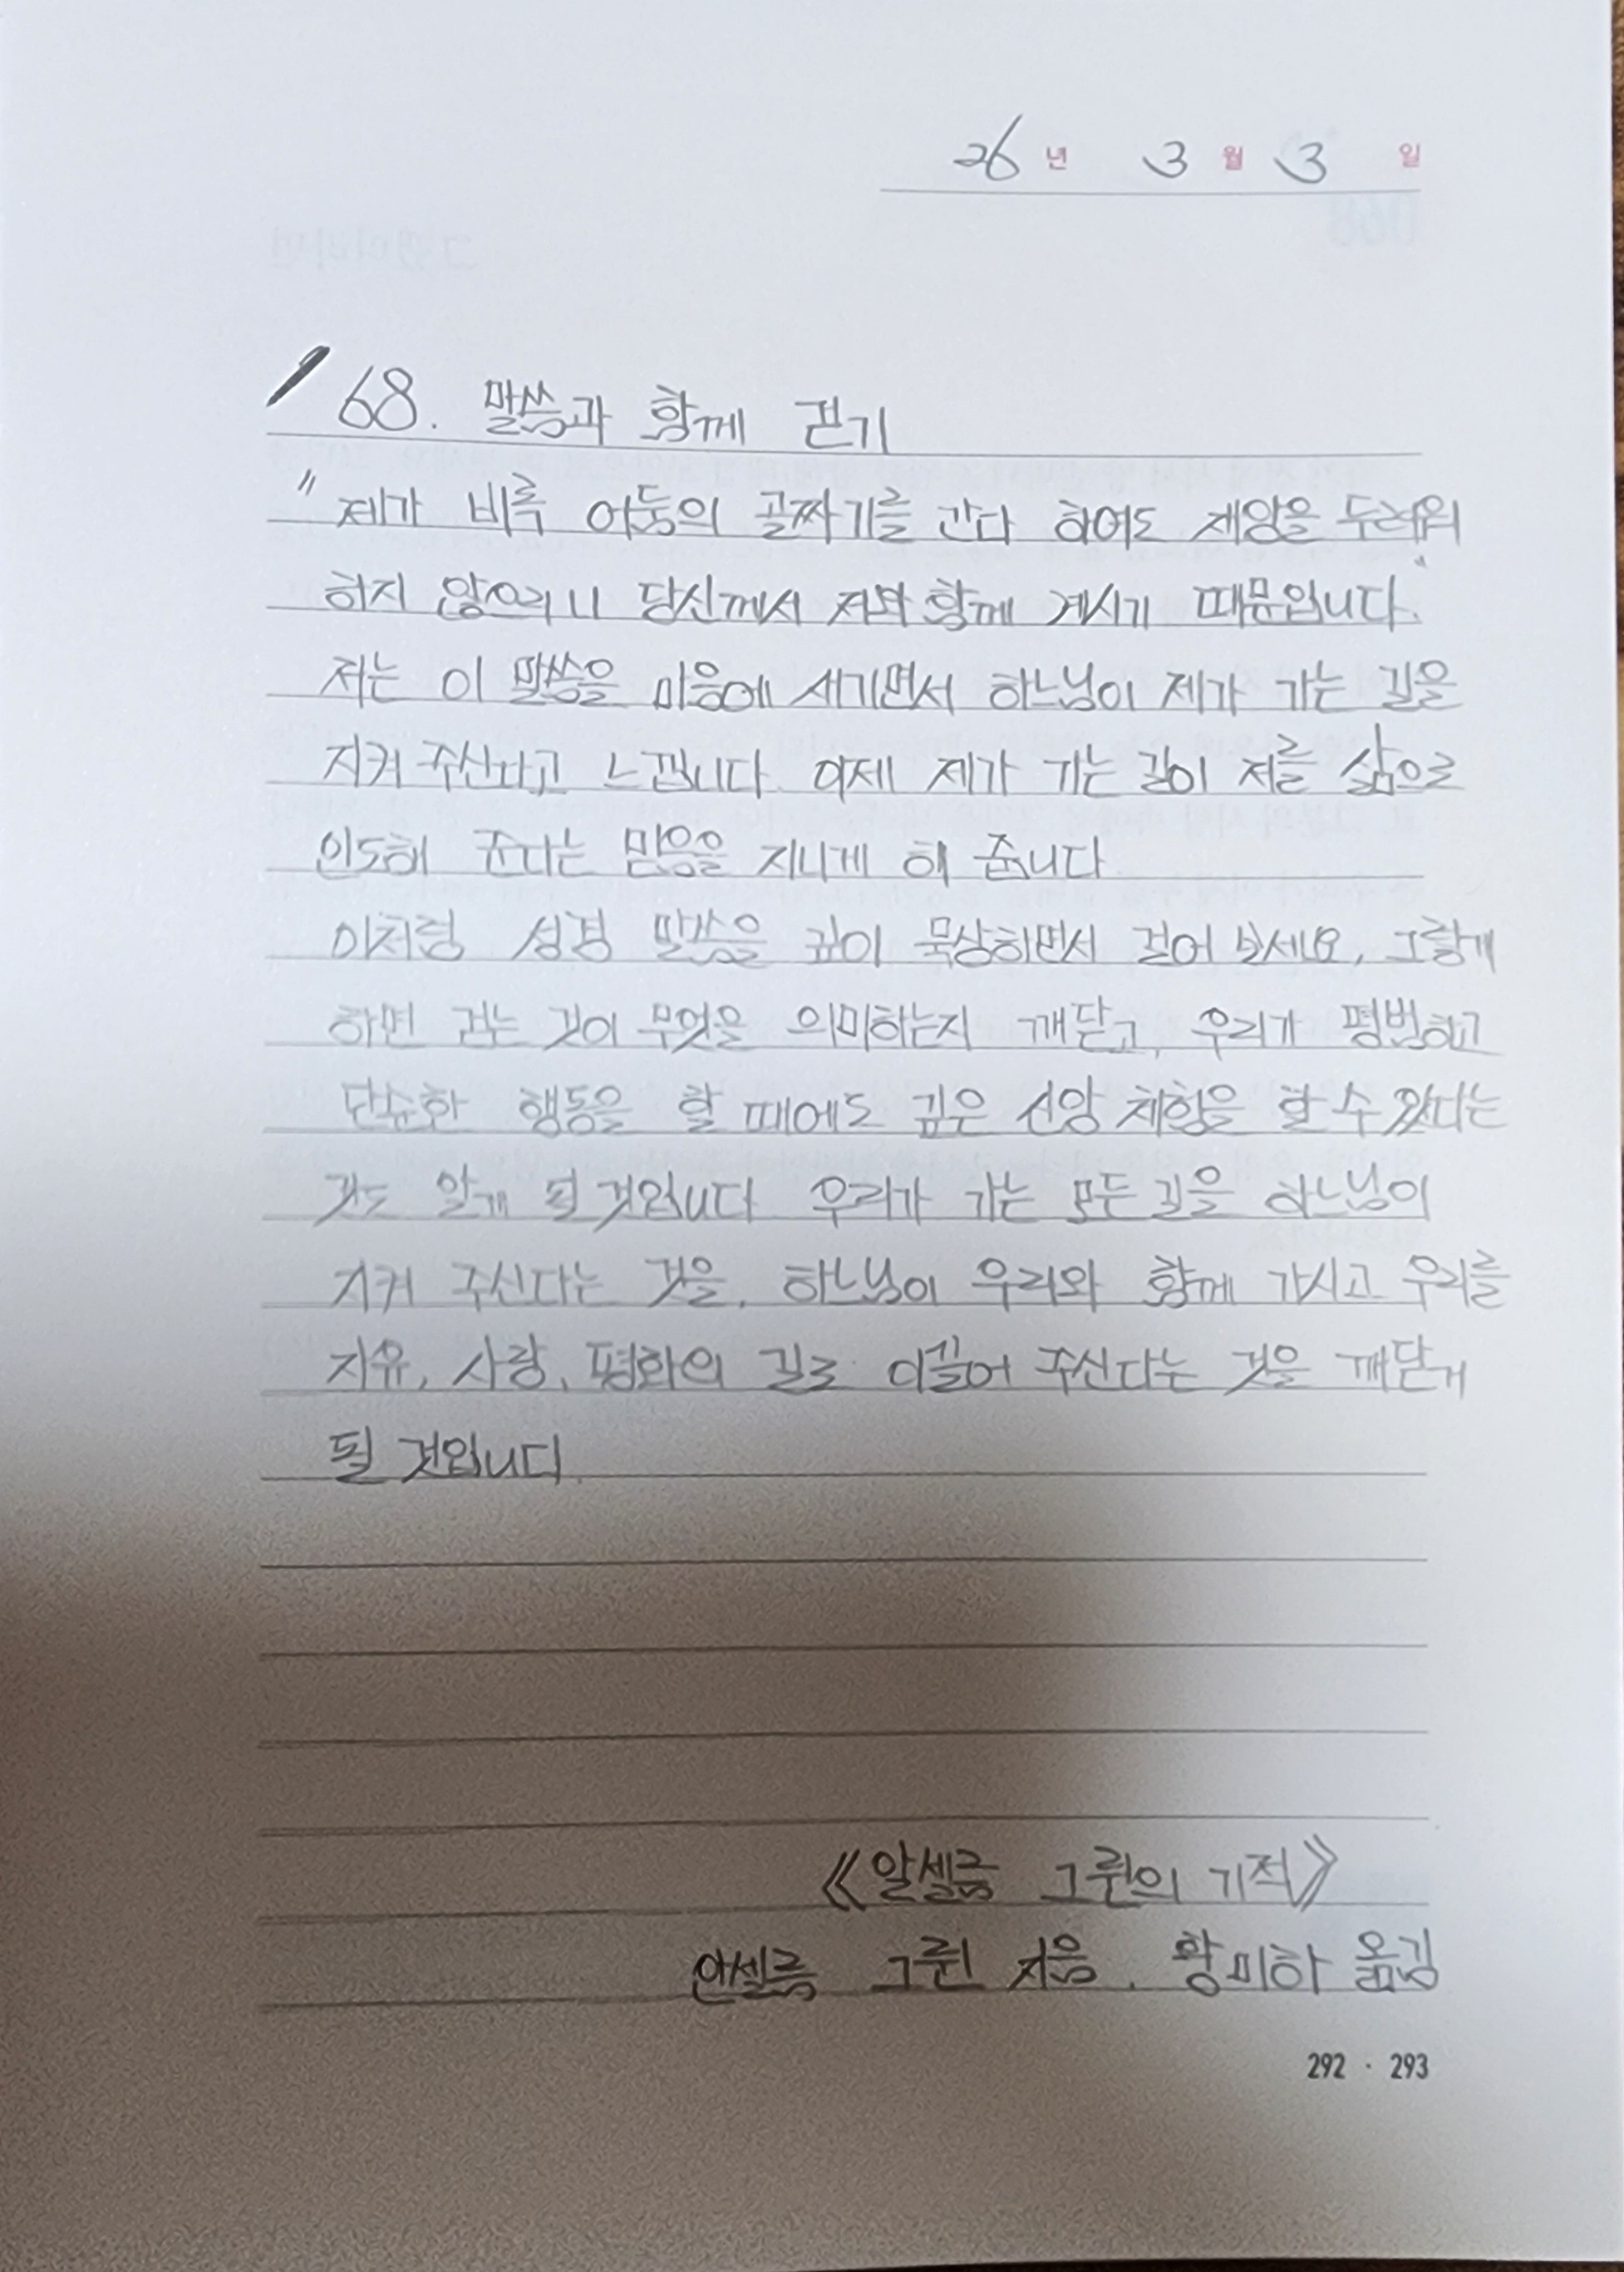 26년 3월 3일
68. 말씀과 함께 걷기
"제가 비록 어둠의 골짜기를 간다 하여도 재앙을 두려워
하지 않으리니 당신께서 저와 함께 계시기 때문입니다."
저는 이 말씀을 마음에 새기면서 하느님이 제가 가는 길을
지켜 주신다고 느낍니다. 이제 제가 가는 길이 저를 삶으로
인도해 준다는 믿음을 지니게 해 줍니다
이처럼 성경 말씀을 깊이 묵상하면서 걸어 보세요, 그렇게
하면 걷는 것이 무엇을 의미하는지 깨닫고, 우리가 평범하고
단순한 행동을 할 때에도 깊은 신앙 체험을 할 수 있다는
것도 알게 될 것입니다 우리가 가는 모든 길을 하느님이
지켜 주신다는 것을, 하느님이 우리와 함께 가시고 우리를
자유, 사랑, 평화의 길로 이끌어 주신다는 것을 깨닫게
될 것입니다.
《안셀름 그륀의 기적》
안셀름 그륀 지음, 황미하 옮김
292 · 293